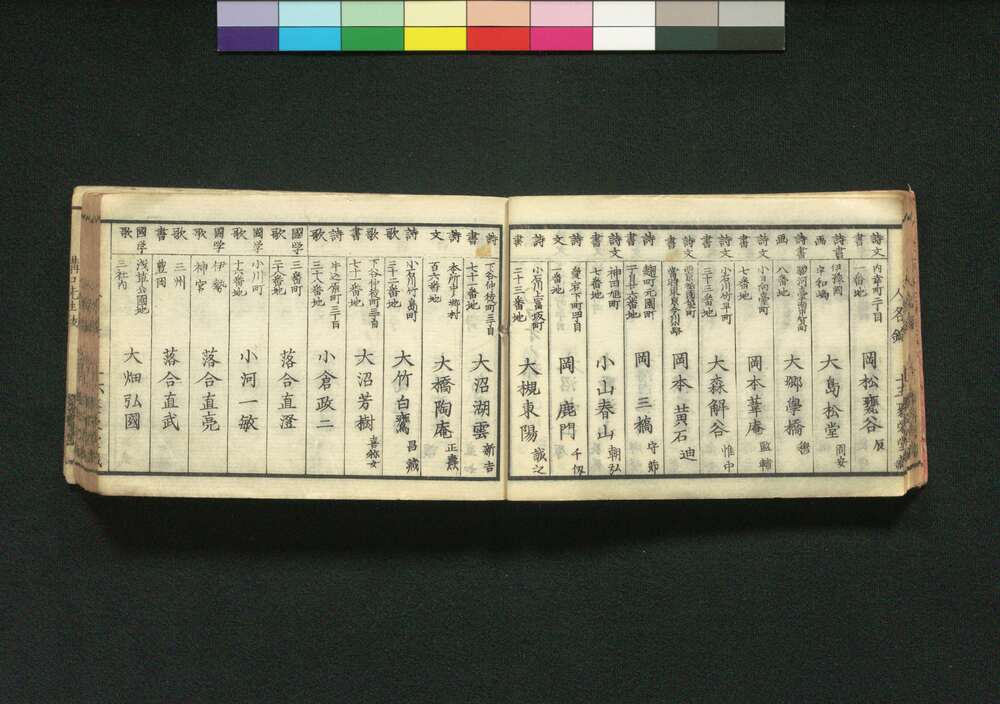 詩文 内幸町二丁目一番地 岡松甕谷 辰
詩書画 伊豫國宇和島 大島松堂
詩書画 八番地 大郷學橋
詩文書 小日向臺町七番地 岡本葦庵 監輔
詩文書 小石川竹早町三十三番地 大森解谷 惟中
詩文書 岡本黄石 迪
詩書 麹町元園町 岡三橋 守節
詩文書 神田旭町七番地 小山春山 朝弘
詩文 愛宕下町四丁目一番地 岡鹿門 千仭
詩書 小石川上富坂町二十三番地 大槻東陽 誠之
詩書 下谷仲徒町三丁目七十一番地 大沼湖雲 新吉
詩文 本所中ノ郷村百六番地 大橋陶庵 正燾
詩歌 小石川竹島町三十二番地 大竹白鶯 昌蔵
歌書 下谷仲徒町三丁目七十一番地 大沼芳樹 女
詩歌 三十八番地 小倉政二
國学歌 三番町二十八番地 落合直澄
國学歌 小川町十六番地 小河一敏
國学歌 伊勢神宮 落合直亮
歌書 三州豊岡 落合直武
國学歌 浅草公園地三社内 大畑弘國
人名錄